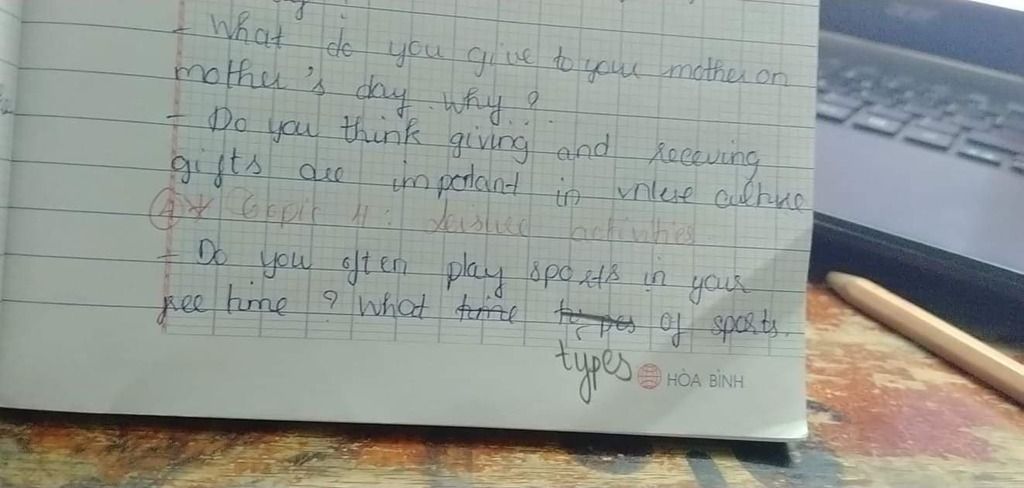 - What do you give to your mother on
mother's day. Why?
- Do you think giving and receving
gifts are important in vnese culture
④ * Topic 4: Leisure activities
- Do you often play sports in your
free time? What time types of sports.
types
HÒA BÌNH